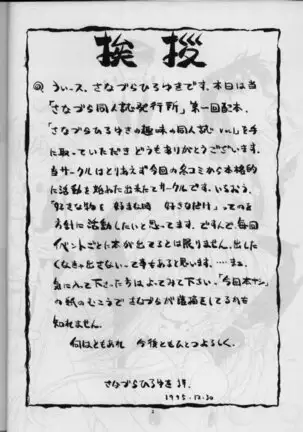 挨拶
◎ ういース、さなづらひろゆきです。本日は当
「さなづら同人誌発行所」第一回配本、
「さなづらひろゆきの趣味の同人誌 Vol.1」を手
に取っていただきどうもありがとうございます。
当サークルはとりあえず今回の冬コミから本格的
に活動を始めた出来たてサークルです。いちおう、
「好きな物を 好きな時 好きなだけ」ってのを
方針に活動したいと思ってます。ですんで、毎回
イベントごとに本が出てるとは限りません。出した
くなきゃ出さないって事もあると思います。……まぁ、
気に入って下さった方はよってみて下さい。「今回本ナシ」
の紙のむこうで さなづらが
知れません。
何はともあれ 今後ともひとつよろしく。
さなづらひろゆき 拝
1995.12.30